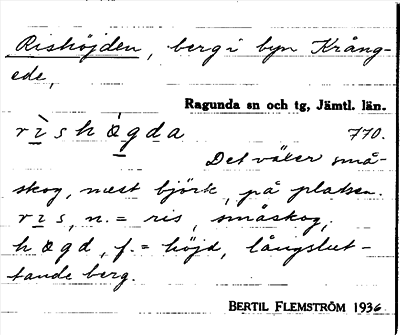 Rishöjden, berg i byn Krång-
ede,
Ragunda sn och tg, Jämtl. län.
rishøgda 770.
Det växer små-
skog, mest björk, på platsen.
ris, n. = ris, småskog,
høgd, f. = höjd, långslut-
tande berg.
BERTIL FLEMSTRÖM 1936